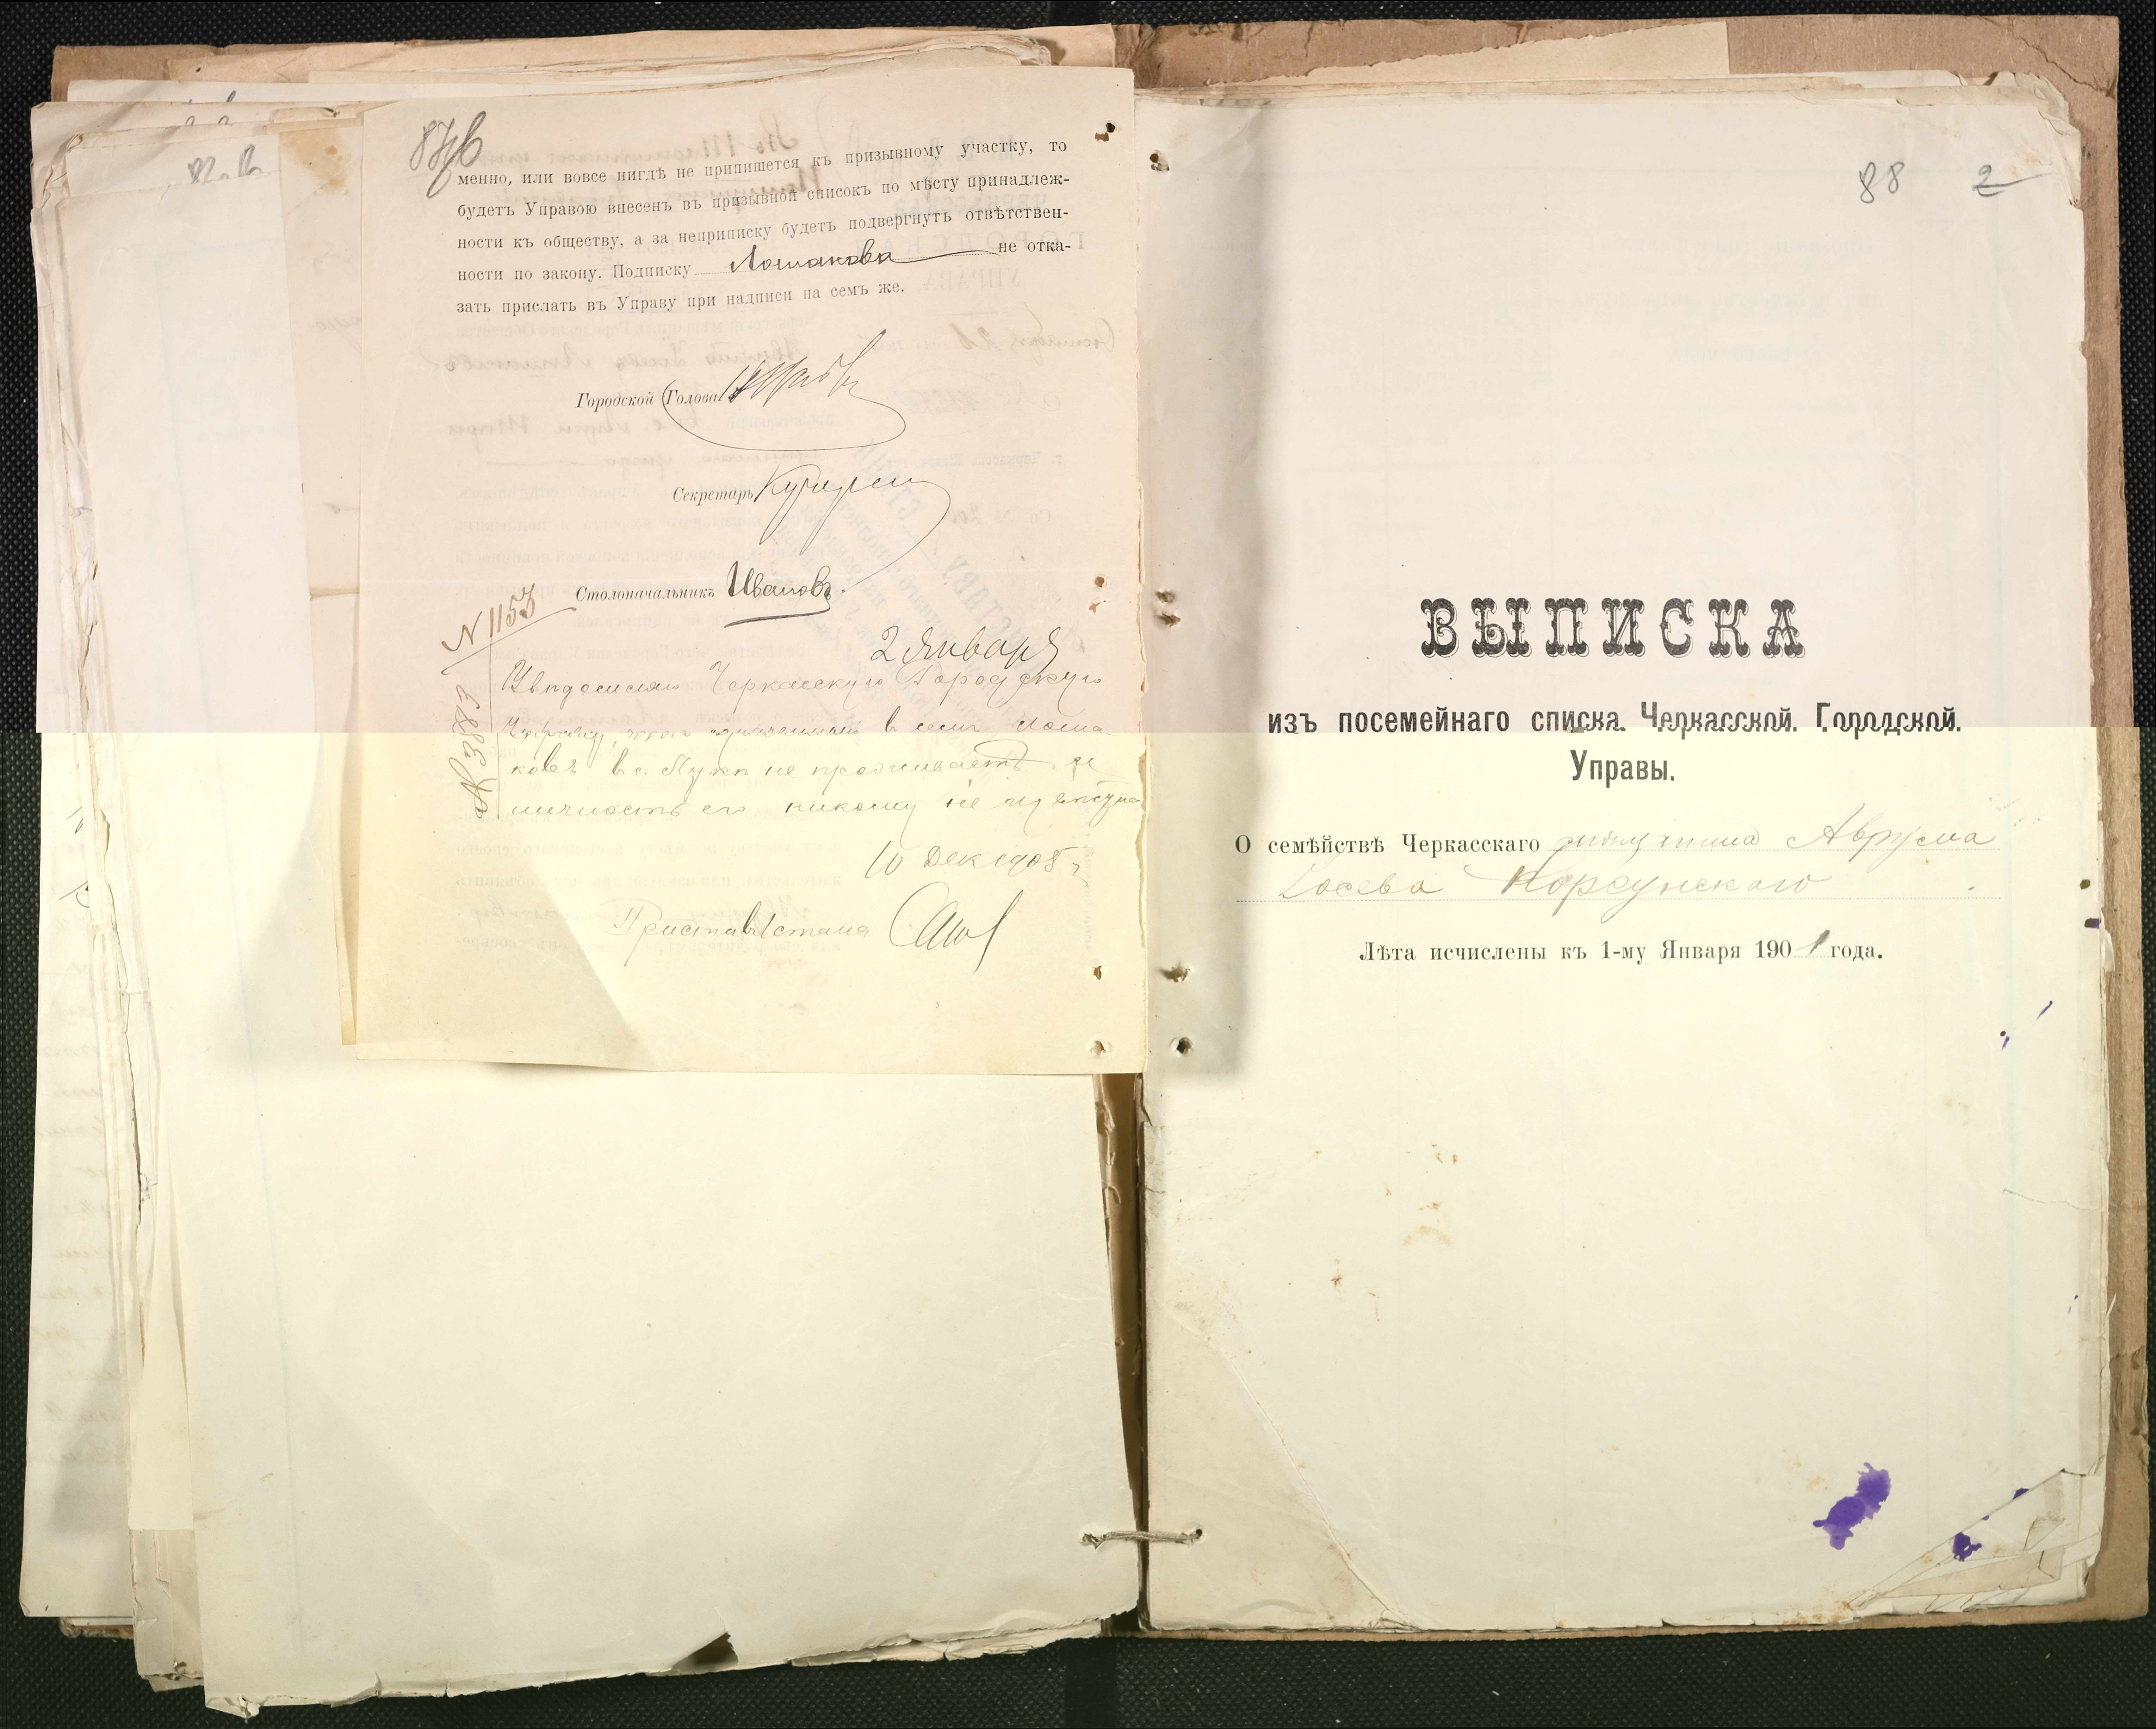 менно, или вовсе нигдѣ не припишется къ призывному участку, то
будетъ Управою внесенъ въ призывной списокъ по мѣсту принадлеж-
ности къ обществу, а за неприписку будетъ подвергнутъ отвѣтствен-
ности по закону. Подписку Лошакова не отка-
зать прислать въ Управу при надписи на семъ же.
Городской Голова
Секретарь
Столоначальникъ Ивановъ
N 1153
2 Января
Черкасскую Городскую
Управу, что в сем Лоша-
ковъ в с. не проживаетъ и
личность его никому не
10 Дек 1905 г
Пристав 1 стана
88 2
ВЫПИСКА
изъ посемейнаго списка Черкасской Городской
Управы.
О семѣйствѣ Черкасскаго мѣщанина Аврума
Іосева Корсунскаго
Лѣта исчислены къ 1-му Января 1901 года.